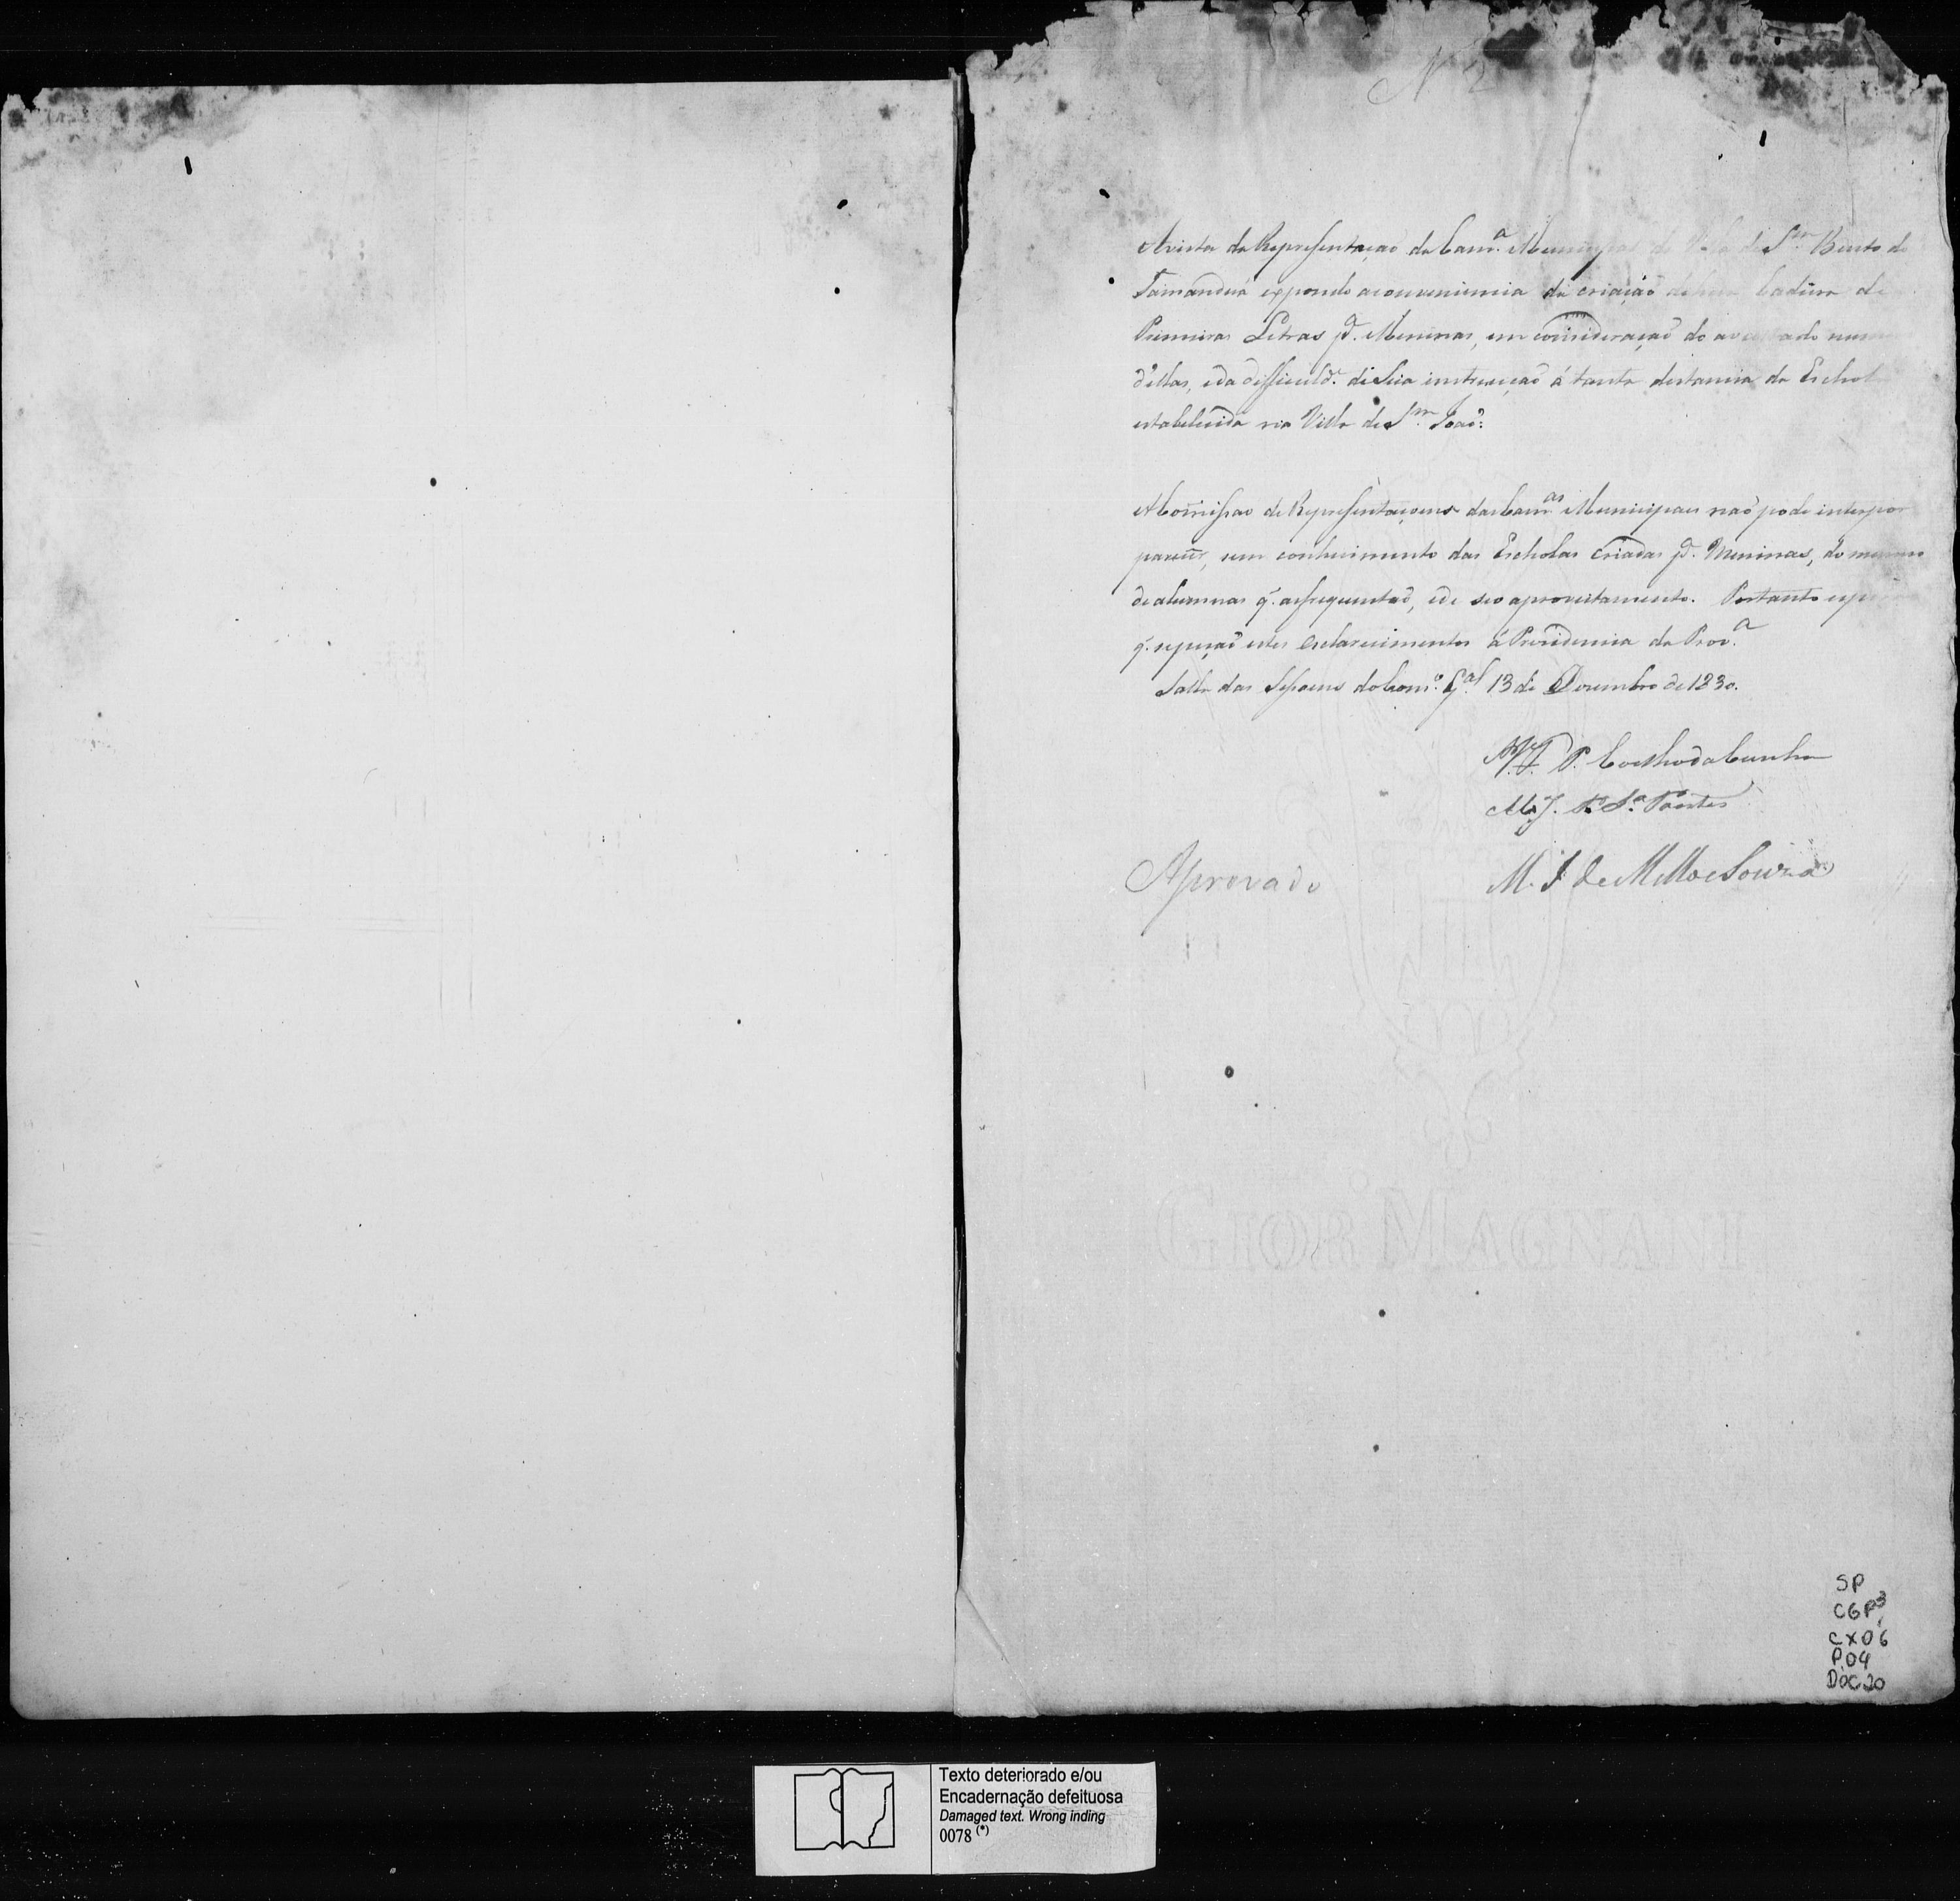 N 2
Avista da Representação da Camª Municipal da Villa de Sm Bento do
Tamanduá expondo aconveniencia da criação de hua Cadeira de
Primeiras Letras pª. Meninas, em consideração do avultado numero
d'ellas, eda difficuld.e de sua instrucção á tanta distancia da Eschola
estabelecida na Villa de Sm. João:
A Commissão de Representaçoens das Camas Municipaes não pode interpor
parecer, sem conhecimento das Escholas criadas pª. Meninas, do numero
de alumnas q. asfrequentão, ede seo aproveitamento. Portanto
q. sepeção estes esclarecimentos á Presidencia da Prov.ª
Salla das Sessoens do Cons.º G.al 13 de Dezembro de 1830.
P. Coelho da Cunha
M. J. P. S.ª Pontes
Aprovado
M. I. de Mello e Souza
GIOR MAGNANI
SP
CGP3
CX06
P.04
DOC20
Texto deteriorado e/ou
Encadernação defeituosa
Damaged text. Wrong inding
0078 (*)